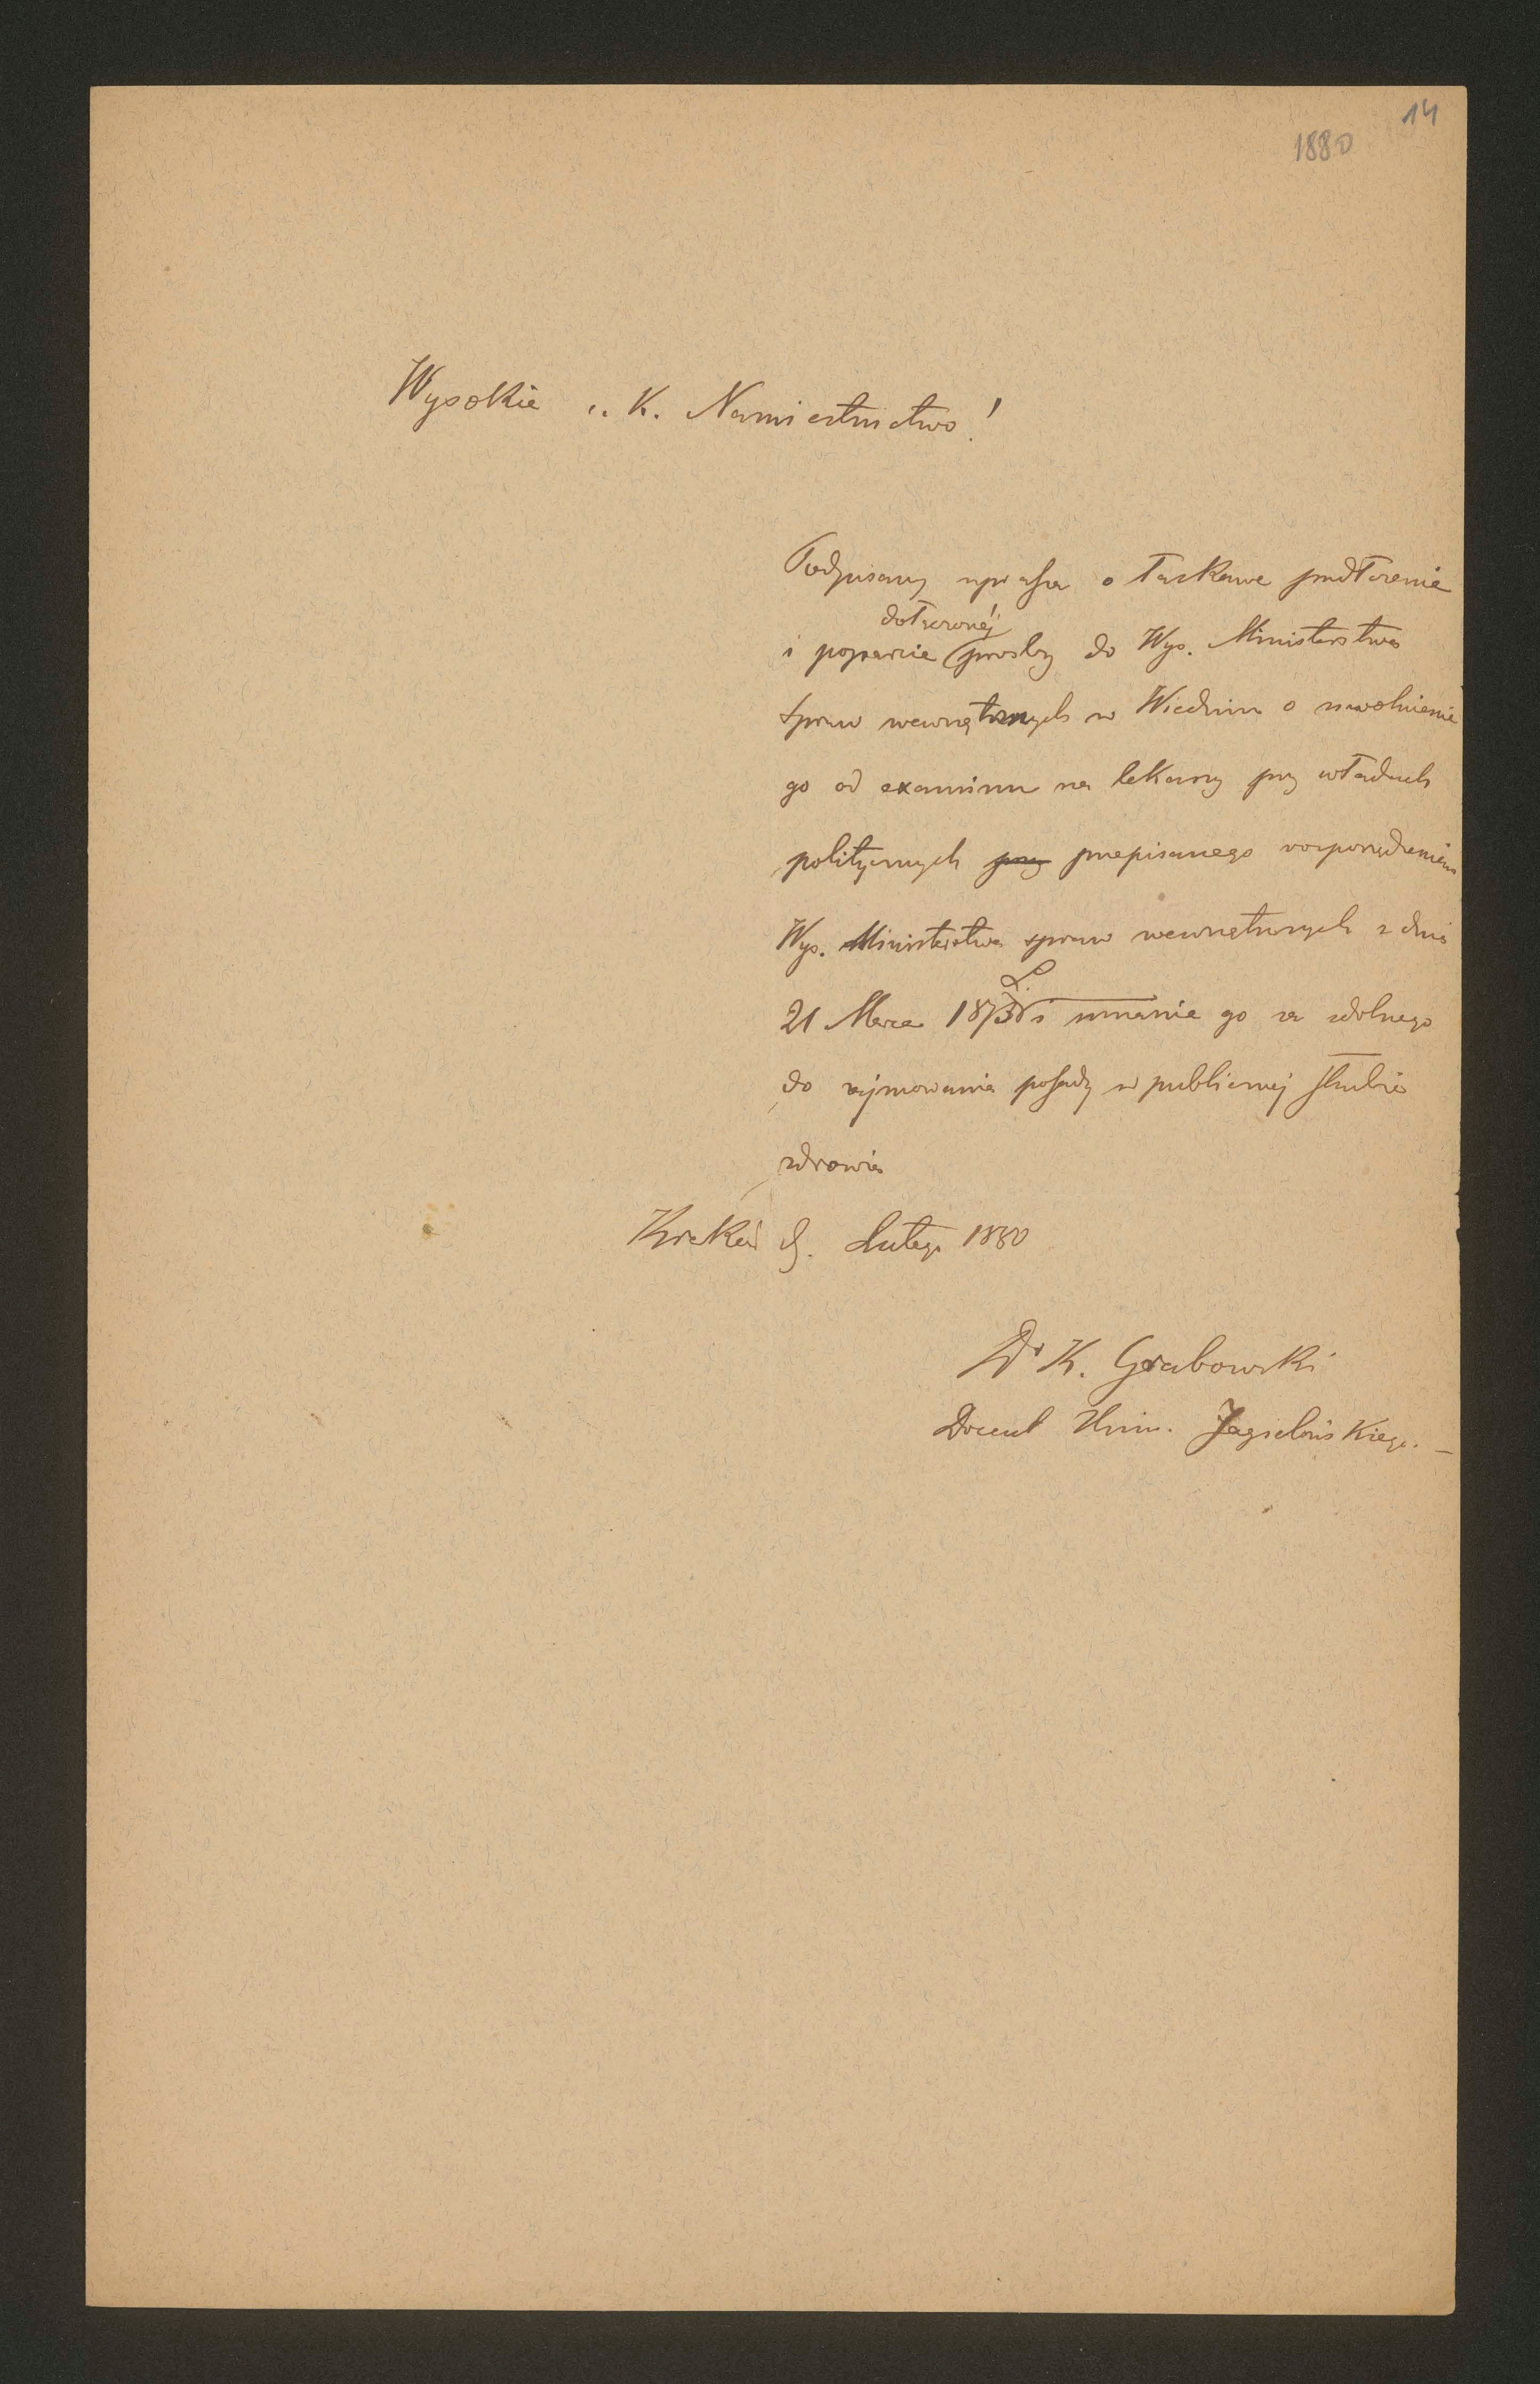 14
1880
Wysokie c. K. Namiestnictwo!
Podpisany uprasza o łaskawe przedłożenie
dołączonéj
i poparcie prośby do Wys. Ministerstwa
spraw wewnętrznych w Wiedniu o uwolnienie
go od examinu na lekarzy przy władzach
politycznych przy przepisanego rozporządzeniem
Wys. Ministerstwa spraw wewnętrznych z dnia
L.
21 Marca 1873 i uznanie go za zdolnego
do zajmowania posady w publicznej służbie
zdrowia
Kraków d. Lutego 1880
Dr K. Grabowski
Docent Uniw. Jagielońskiego. –